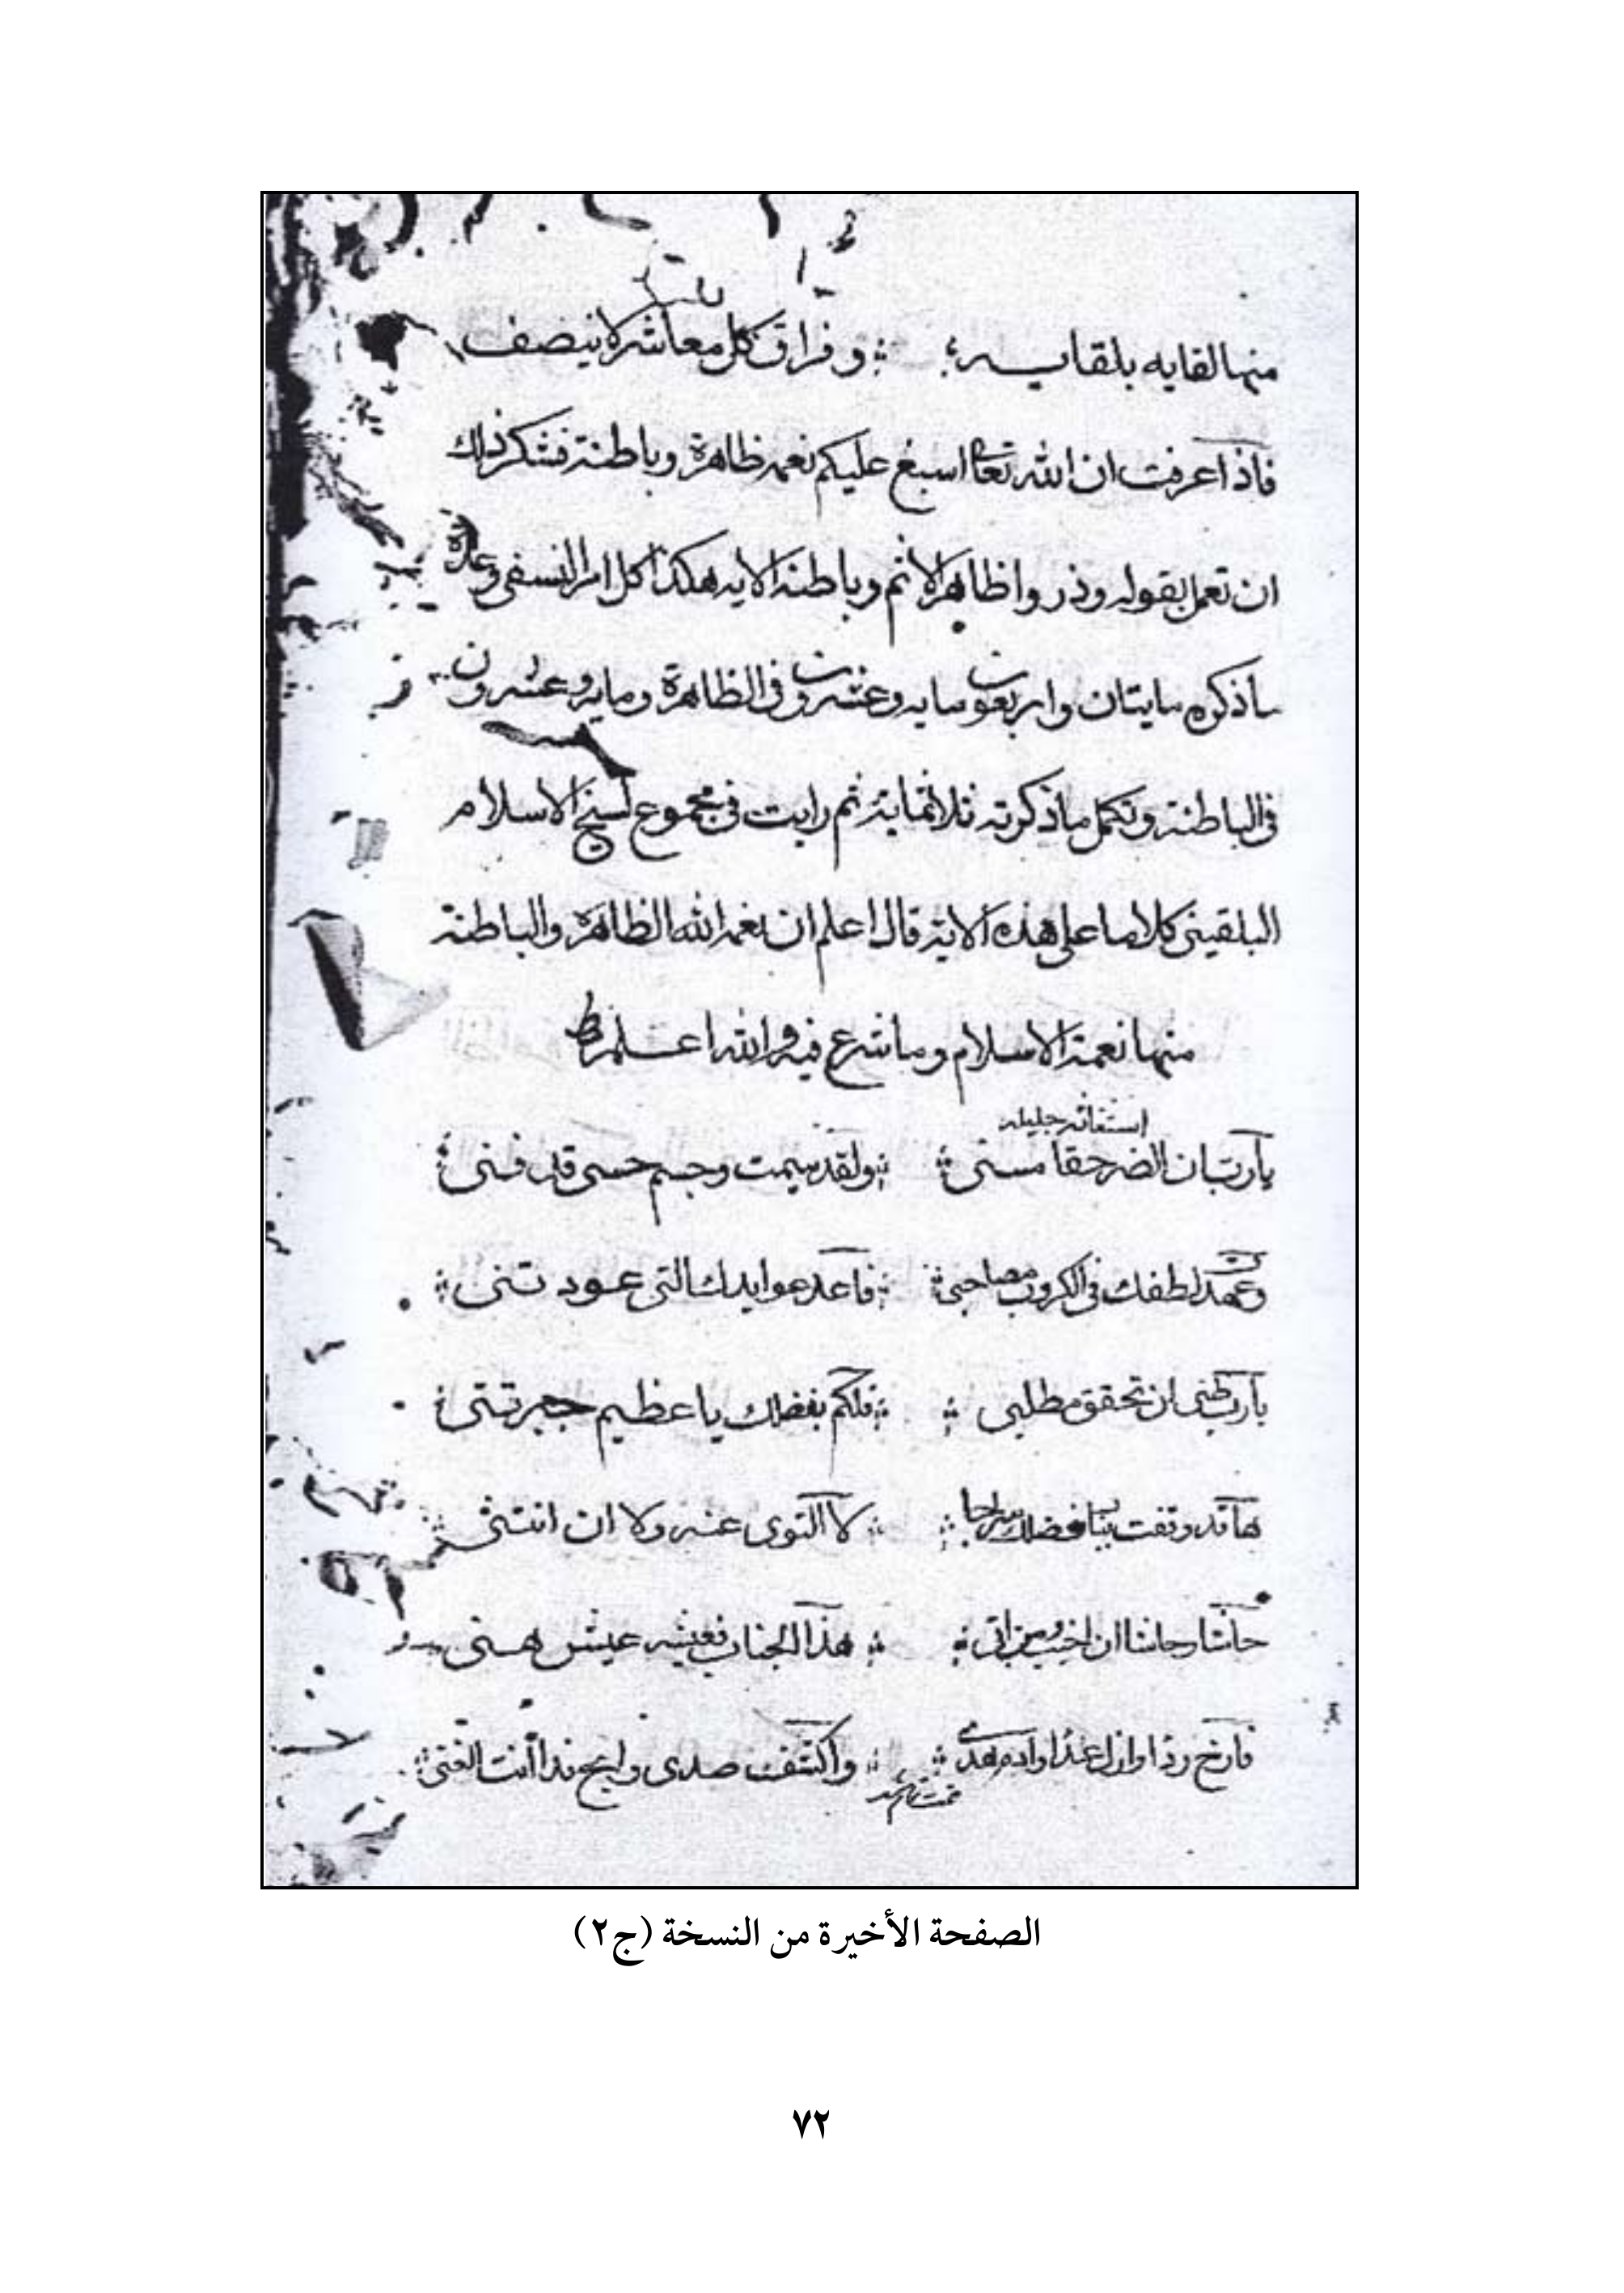 منها لقايه بلقايـــه وفراق كل معاشر لا ينصف
فاذا عرفت ان الله تعالى اسبغ عليكم نعمه ظاهرة وباطنة فشكر ذلك
ان تعمل بقوله وذروا ظاهر الاثم وباطنه الايه هكذا كل امر النسفى وعدة
ماذكره مايتان واربعون مايه وعشرون فى الظاهرة ومايه وعشرون
فى الباطنة وتكمل ماذكرته ثلاثماية ثم رايت فى مجموع لشيخ الاسلام
البلقينى كلاما على هذه الاية قال اعلم ان نعم الله الظاهرة والباطنة
منها نعمة الاسلام وما شرع فيه والله اعلم
استغاثه جليله
يارب ان الضر حقا مسنى ولقد سيمت وجسم حسى قد فنى
وعهد لطفك فى الكروب مصاحبى فاعد عوايدك التى عودتنى
يارب ظنى ان تحقق مطلبى فلكم بفضلك يا عظيم جبرتنى
ها قد وقفت بباب فضلك لا التوى عنه ولا ان انثنى
حاشا وحاشا ان اخيب هذا الجناب فعيشه عيش هنى
واكشف صدى
الصفحة الأخيرة من النسخة (ج٢)
٧٢